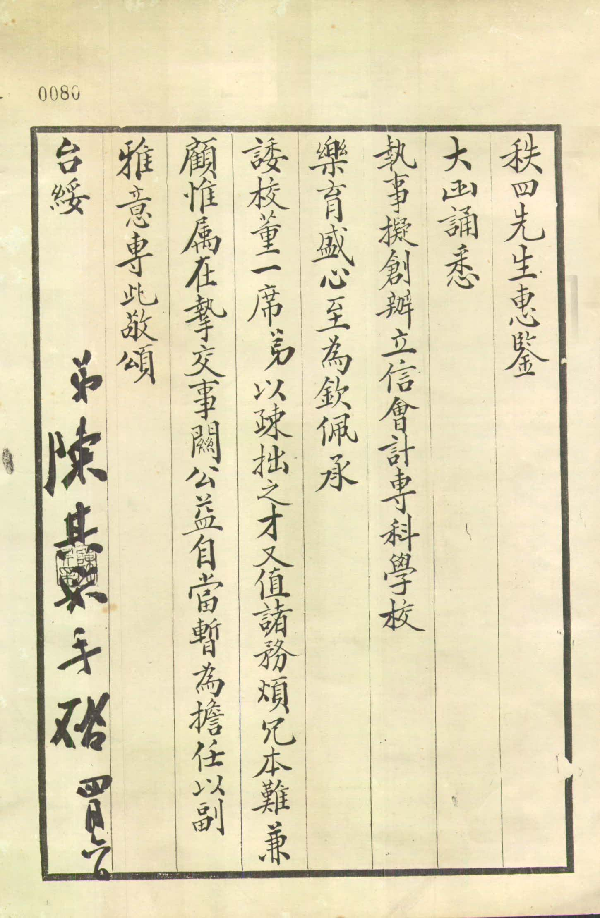 0080
秩四先生惠鑒
大函誦悉
執事擬創辦立信會計專科學校
樂育盛心至為欽佩承
諉校董一席弟以疎拙之才又值諸務煩冗本難兼
顧惟属在摯交事關公益自當暫為擔任以副
雅意專此敬頌
台綏
弟陳其采手啓 四月六日